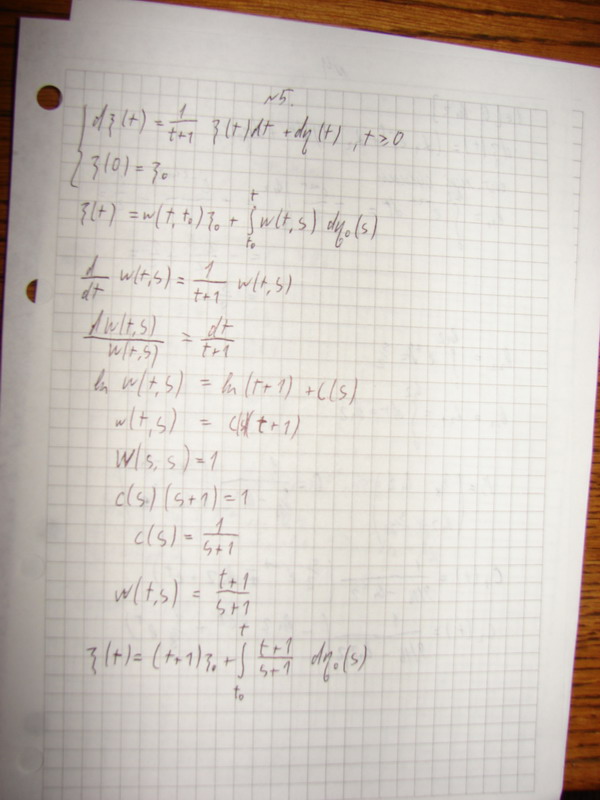 №5.
{ dξ(t) = 1/(t+1) ξ(t)dt + dη(t), t ≥ 0
ξ(0) = ξ₀
ξ(t) = w(t, t₀)ξ₀ + ∫_{t₀}^{t} w(t, s) dη₀(s)
d/dt w(t,s) = 1/(t+1) w(t,s)
dw(t,s)/w(t,s) = dt/(t+1)
ln w(t,s) = ln(t+1) + c(s)
w(t,s) = c(s)(t+1)
W(s, s) = 1
c(s)(s+1) = 1
c(s) = 1/(s+1)
w(t,s) = (t+1)/(s+1)
ξ(t) = (t+1)ξ₀ + ∫_{t₀}^{t} (t+1)/(s+1) dη₀(s)